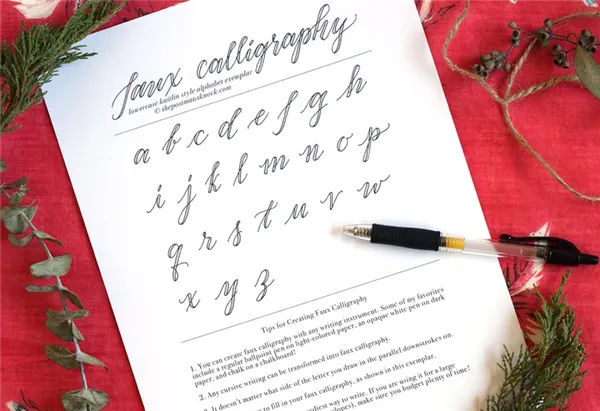 faux calligraphy
lowercase kaitlin style alphabet exemplar
© thepostmansknock.com
a b c d e f g h
i j k l m n o p
q r s t u v w
x y z
Tips for Creating Faux Calligraphy
1. You can create faux calligraphy with any writing instrument. Some of my favorites
include a regular ballpoint pen on light-colored paper, an opaque white pen on dark
paper, and chalk on a chalkboard!
2. Any cursive writing can be transformed into faux calligraphy.
3. It doesn't matter what side of the letter you draw in the parallel downstrokes on.
to fill in your faux calligraphy, as shown in this exemplar.
way to write. If you are using it for large
make sure you budget plenty of time!